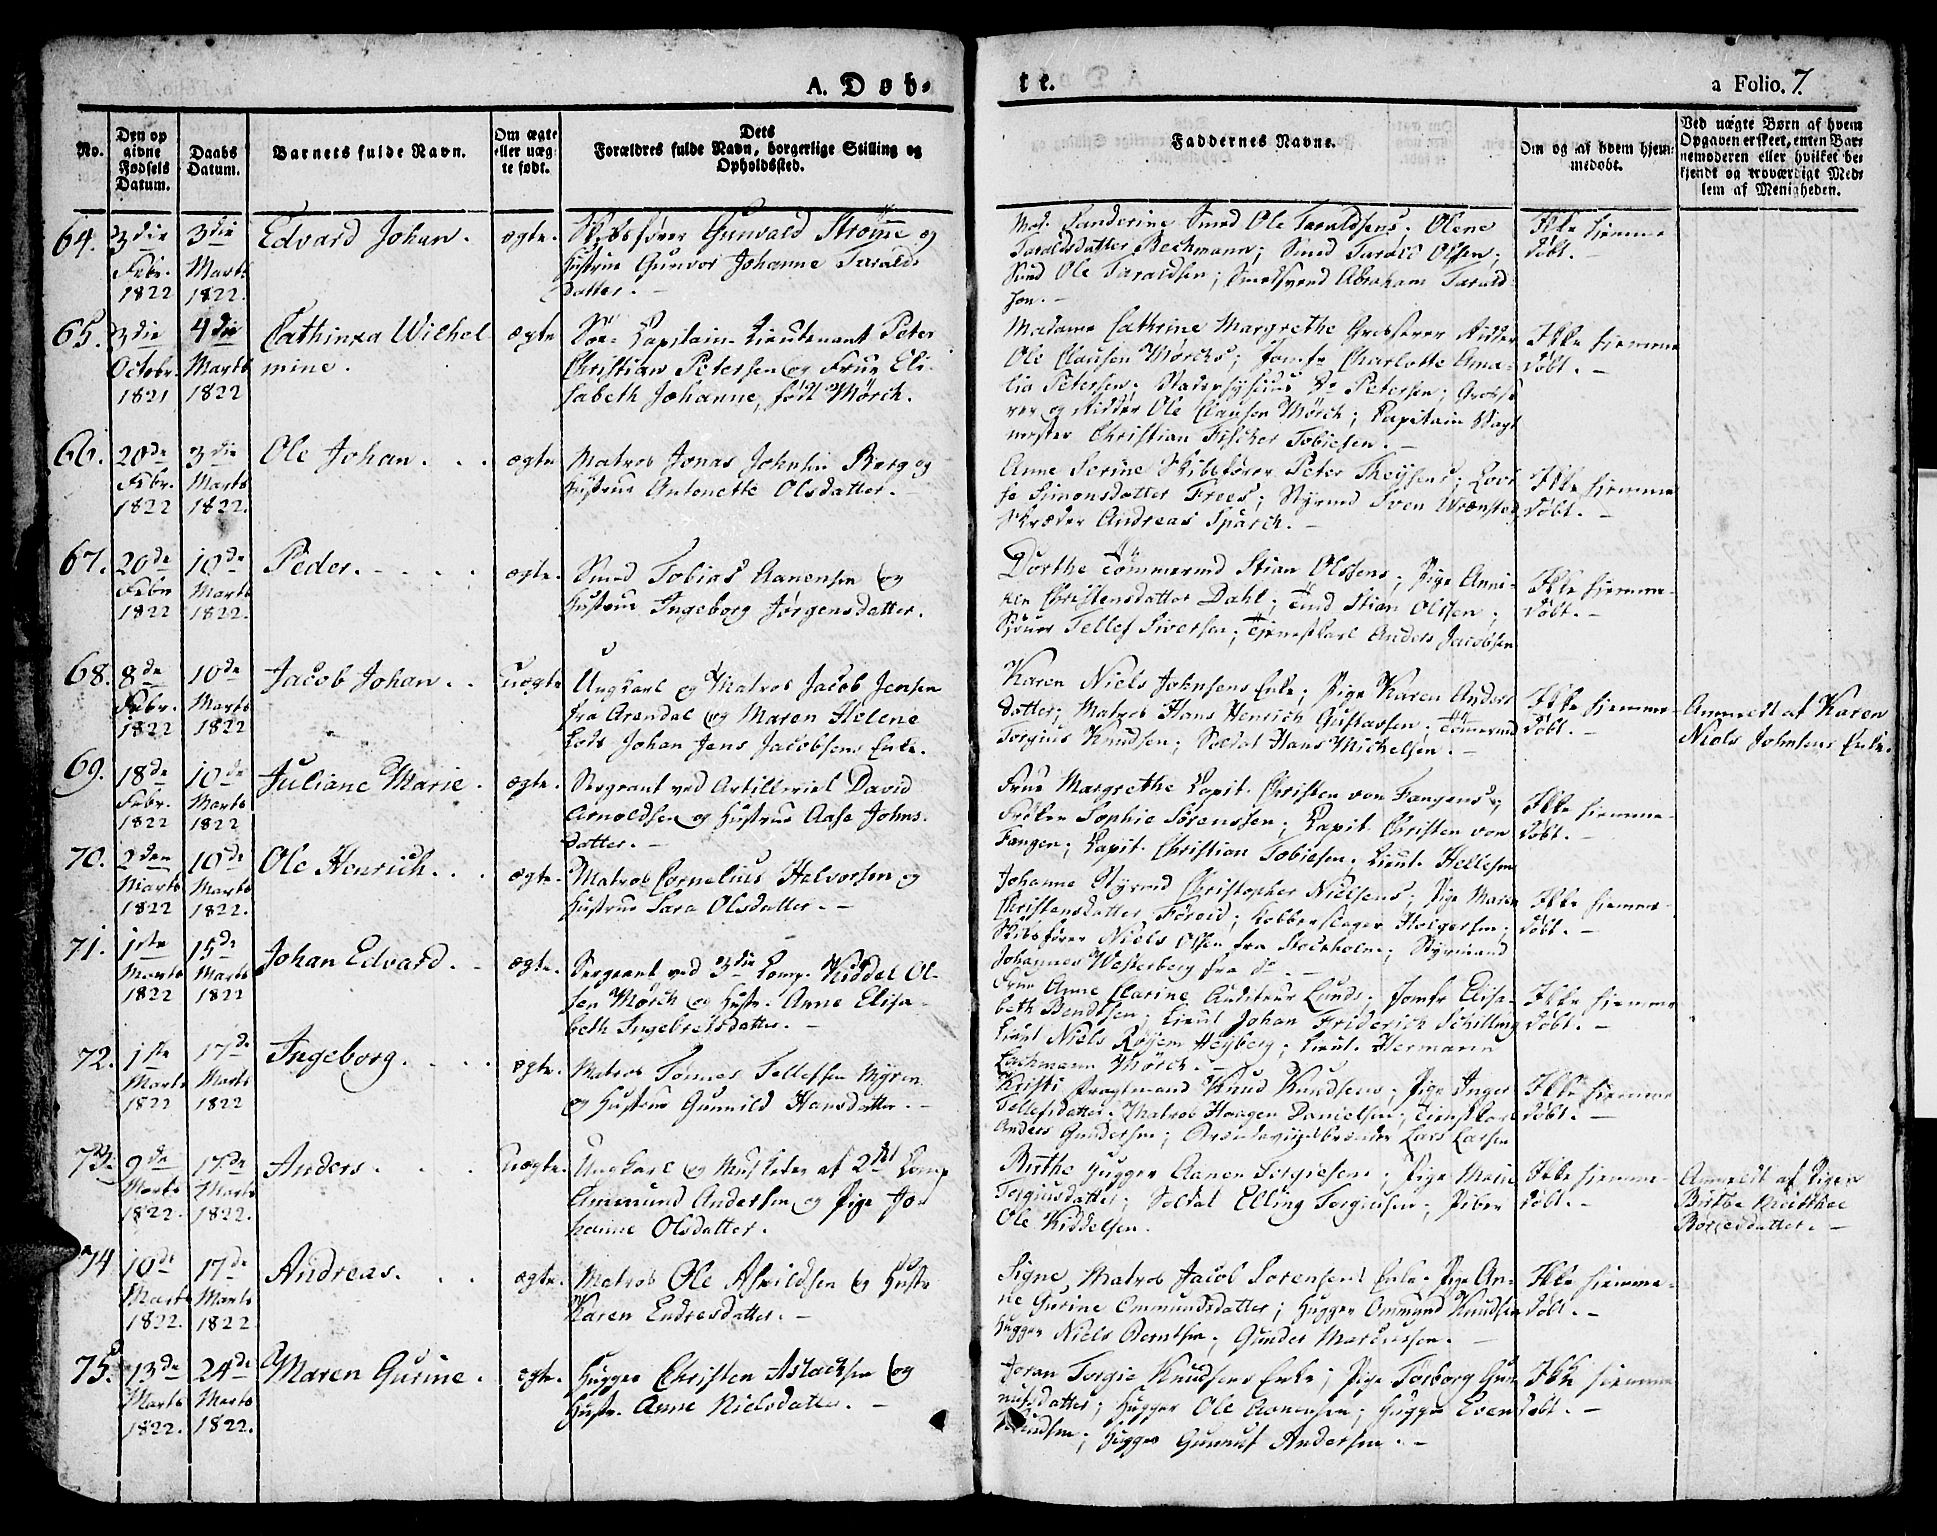 A. Døb-
te.
a Folio. 7.
No.
Den op
givne
Fødsels
Datum.
Daabs
Datum.
Barnets fulde Navn.
Om ægte
eller uæg
te født.
Dets
Forældres fulde Navn, borgerlige Stilling og
Opholdssted.
Faddernes Navne.
Om og af hvem hjem-
medøbt.
Ved uægte Børn af hvem
Opgaven er skeet, enten Bar-
nemoderen eller hvilket be-
kjendt og troværdigt Med-
lem af Menigheden.
64.
3die
Febr.
1822
3die
Marts
1822.
Edvard Johan.
ægte.
Skibsfører Gunvald Strømme og
Hustrue Gunvor Johanne Taralds
datter. —
Mad. Sanderine Smed Ole Taraldsens; Olene
Taraldsdatter Beckmann; Smed Tarald Olsen;
Smed Ole Taraldsen; Smedsvend Abraham Tarald-
sen. —
Ikke hiemme-
døbt. —
65.
3die
Octobr.
1821
4die
Marts
1822
Cathinka Wilhel
mine.
ægte
Søe-Capitain-Lieutenant Peter
Christian Petersen og Frue Eli-
sabeth Johanne, født Mørch.
Madame Cathrine Margrethe Grosserer Ridder
Ole Clausen Mørchs; Jomfr Charlotte Ama-
lia Petersen; Petersen; Grosse-
rer og Ridder Ole Clausen Mørch; Capitain Vagt
mester Christian Fischer Tobiesen. —
Ikke hiemme
døbt. —
66.
20de
Febr.
1822
3die
Marts
1822.
Ole Johan.
ægte
Matros Jonas Johnsen Berg og
Hustrue Antonette Olsdatter.
Anne Serine Skibsfører Peter Theysens; Lovi-
se Simonsdatter Frees; Styrmd Sven Wrønsted
Skræder Andreas Spärch. —
Ikke hiemme
døbt. —
67.
20de
Febr
1822
10de
Marts
1822.
Peder.
ægte.
Smed Tobias Aanensen og
Hustrue Ingeborg Jørgensdatter.
Dorthe Tömmermd Stian Olssens; Pige Anni-
ken Christensdatter Dahl; Tmd Stian Olssen;
Tellef Sivertsen; Tjenestkarl Anders Jacobsen
Ikke hiemme-
døbt. —
68.
8de
Febr.
1822
10de
Marts
1822
Jacob Johan.
uægte
Ungkarl og Matros Jacob Jensen
fra Arendal og Maren Helene
Lods Johan Jens Jacobsens Enke.
Karen Niels Johnsens Enke; Pige Karen Anders
datter; Matros Hans Henrich Gustavsen; Tömmermd
Torgius Knudsen; Soldat Hans Michelsen. —
Ikke hiemme-
døbt. —
Anmeldt af Karen
Niels Johnsens Enke.
69.
18de
Febr.
1822
10de
Marts
1822
Juliane Marie.
ægte.
Sergeant ved Artilleriet David
Arnoldsen og Hustrue Aase Johns-
datter. —
Frue Margrethe Capit. Christen von Fangens;
Frøken Sophie Sörenssen; Capit. Christen von
Fangen; Capit. Christian Tobiesen; Lieut. Hellesen
Ikke hiemme-
døbt. —
70.
2den
Marts
1822
10de
Marts
1822.
Ole Henrich.
ægte.
Matros Cornelius Halvorsen og
Hustrue Sara Olsdatter. —
Johanne Styrmd Christopher Nielsens; Pige Maren
Christensdatter Föreid; Kobberslager Holgersen;
Skibsfører Niels Olsen fra Stockholm; Styrmand
Johannes Westerberg fra do —
Ikke hiemme-
døbt. —
71.
1ste
Marts
1822
15de
Marts
1822
Johan Edvard.
ægte.
Sergeant ved 3die Comp. Kiddel Ol-
sen Mørch og Hustr. Anne Elisa-
beth Ingebretsdatter. —
Frue Anne Clarine Auditeur Lunds; Jomfr Elisa-
beth Bendtsen; Lieut Johan Friderich Schilling
Lieut Niels Röyem Heyberg; Lieut. Hermann
Lachmann Mörch. —
Ikke hiemme
døbt. —
72.
1ste
Marts
1822
17de
Marts
1822
Ingeborg.
ægte.
Matros Tönnes Tellefsen Myren
og Hustrue Gunnild Hansdatter. —
Kristi Fragtmand Knud Knudsens; Pige Inger
Tellefsdatter; Matros Haagen Danielsen; Tienstkarl
Anders Gundersen; Brændeviinsbrænder Lars Larsen
Ikke hiemme
døbt. —
73.
9de
Marts
1822.
17de
Marts
1822.
Anders.
uægte.
Ungkarl og Musketer af 2det Comp
Ammund Andersen og Pige Jo-
hanne Olsdatter.
Birthe Hugger Aanen Torgiesens; Pige Marie
Torgiusdatter; Soldat Elling Torgiussen; Piber
Ole Kiddelsen.
Ikke hiemme-
døbt. —
Anmeldt af Pigen
Birthe
Børresdatter. —
74
10de
Marts
1822.
17de
Marts
1822
Andreas.
ægte.
Matros Ole Askildsen og Hustr
Karen Endresdatter. —
Signe Matros Jacob Sorensens Enke; Pige An-
ne Gurine Ommundsdatter; Hugger Ommund Knudsen
Hugger Niels Berntsen; Gunder Marcussen.
Ikke hiemme-
døbt. —
75.
13de
Marts
1822.
24de
Marts
1822.
Maren Gurine.
ægte.
Hugger Christen Aslachsen og
Hustr. Anne Nielsdatter. —
Joran Torgie Knudsens Enke; Pige Torborg Gun-
nufsdatter; Hugger Ole Aanensen; Hugger Even
Knudsen; Hugger Gunnuf Andersen. —
Ikke hiemme
døbt. —